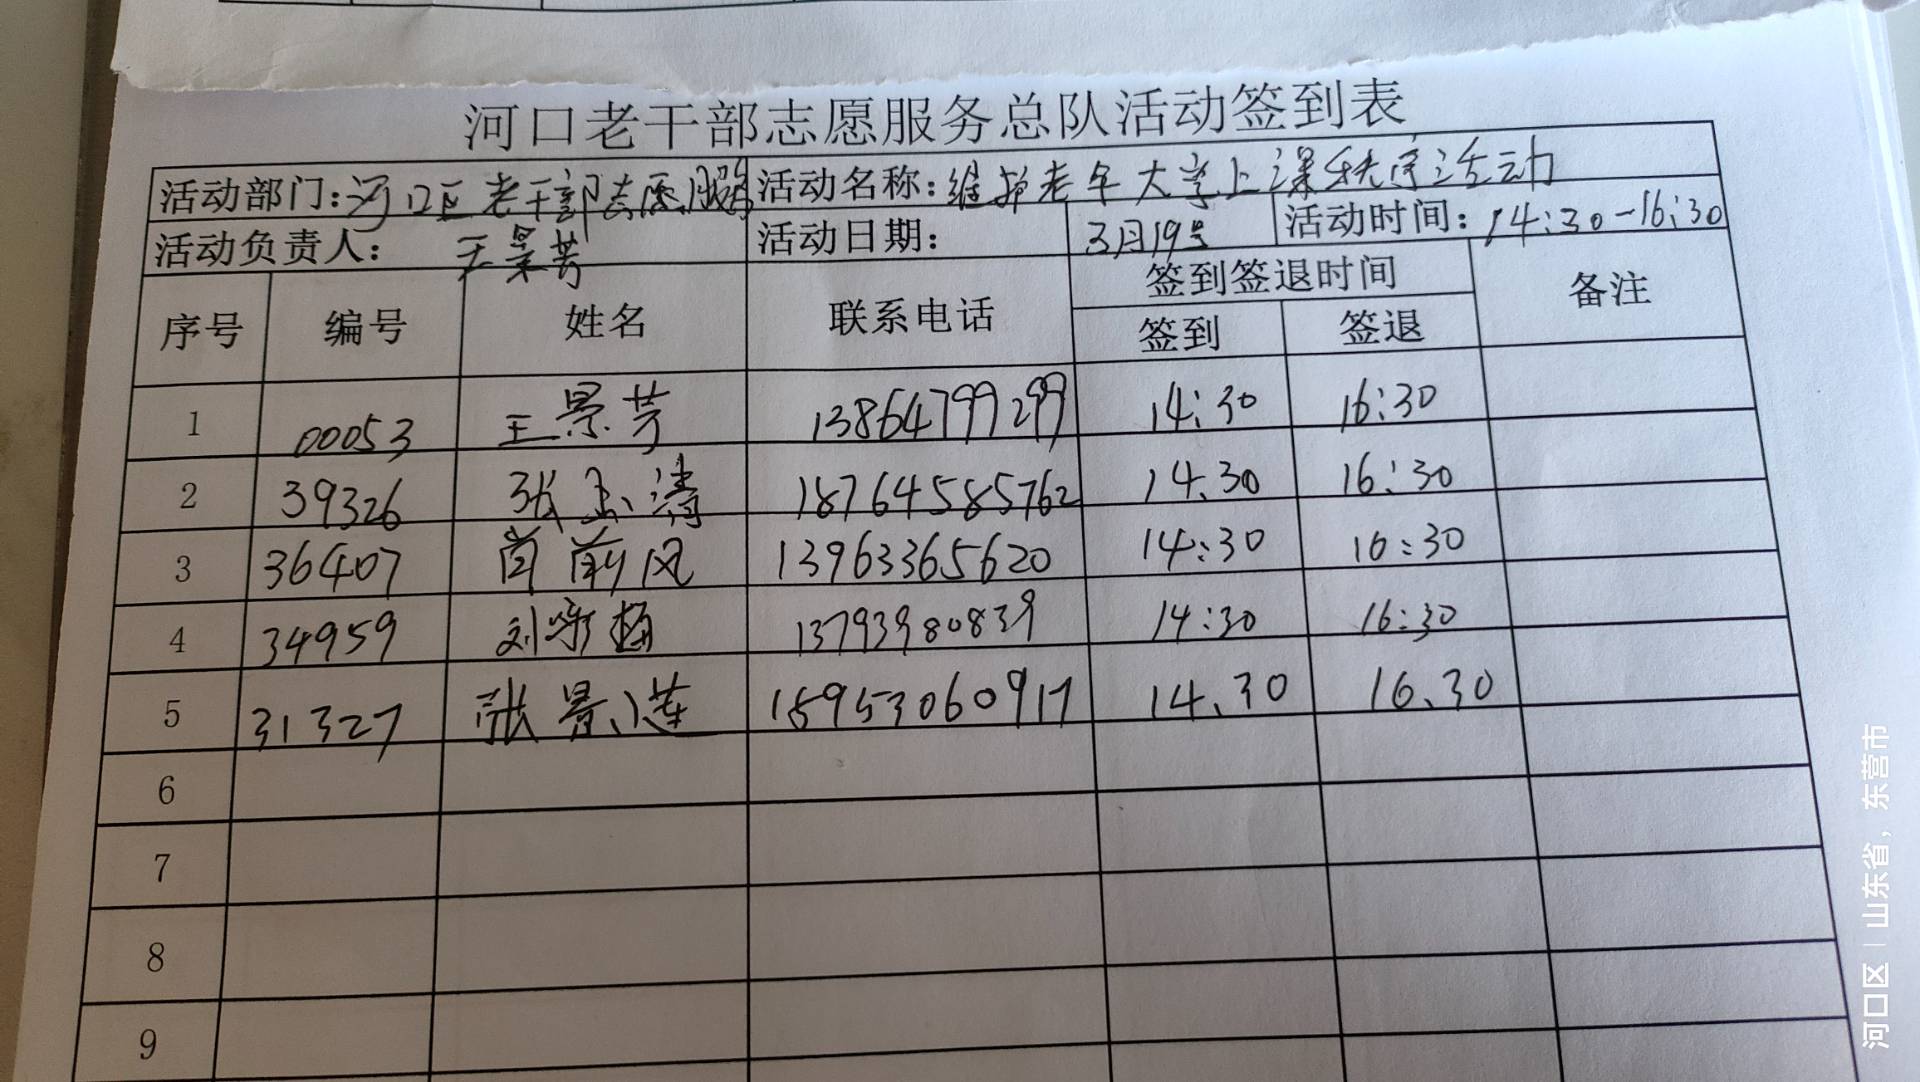 河口老干部志愿服务总队活动签到表
活动部门:河口区老干部志愿服务 活动名称:维护老年大学上课秩序活动
活动负责人: 王景芳 活动日期: 3月19号 活动时间: 14:30-16:30
序号 编号 姓名 联系电话 签到签退时间 备注
签到 签退
1 00053 王景芳 13864799299 14:30 16:30
2 39326 张玉涛 18764585762 14.30 16:30
3 36407 肖前风 13963365620 14:30 16:30
4 34959 刘 梅 13793980839 14:30 16:30
5 31327 张景莲 15953060917 14.30 16.30
6
7
8
9
河口区 | 山东省，东营市